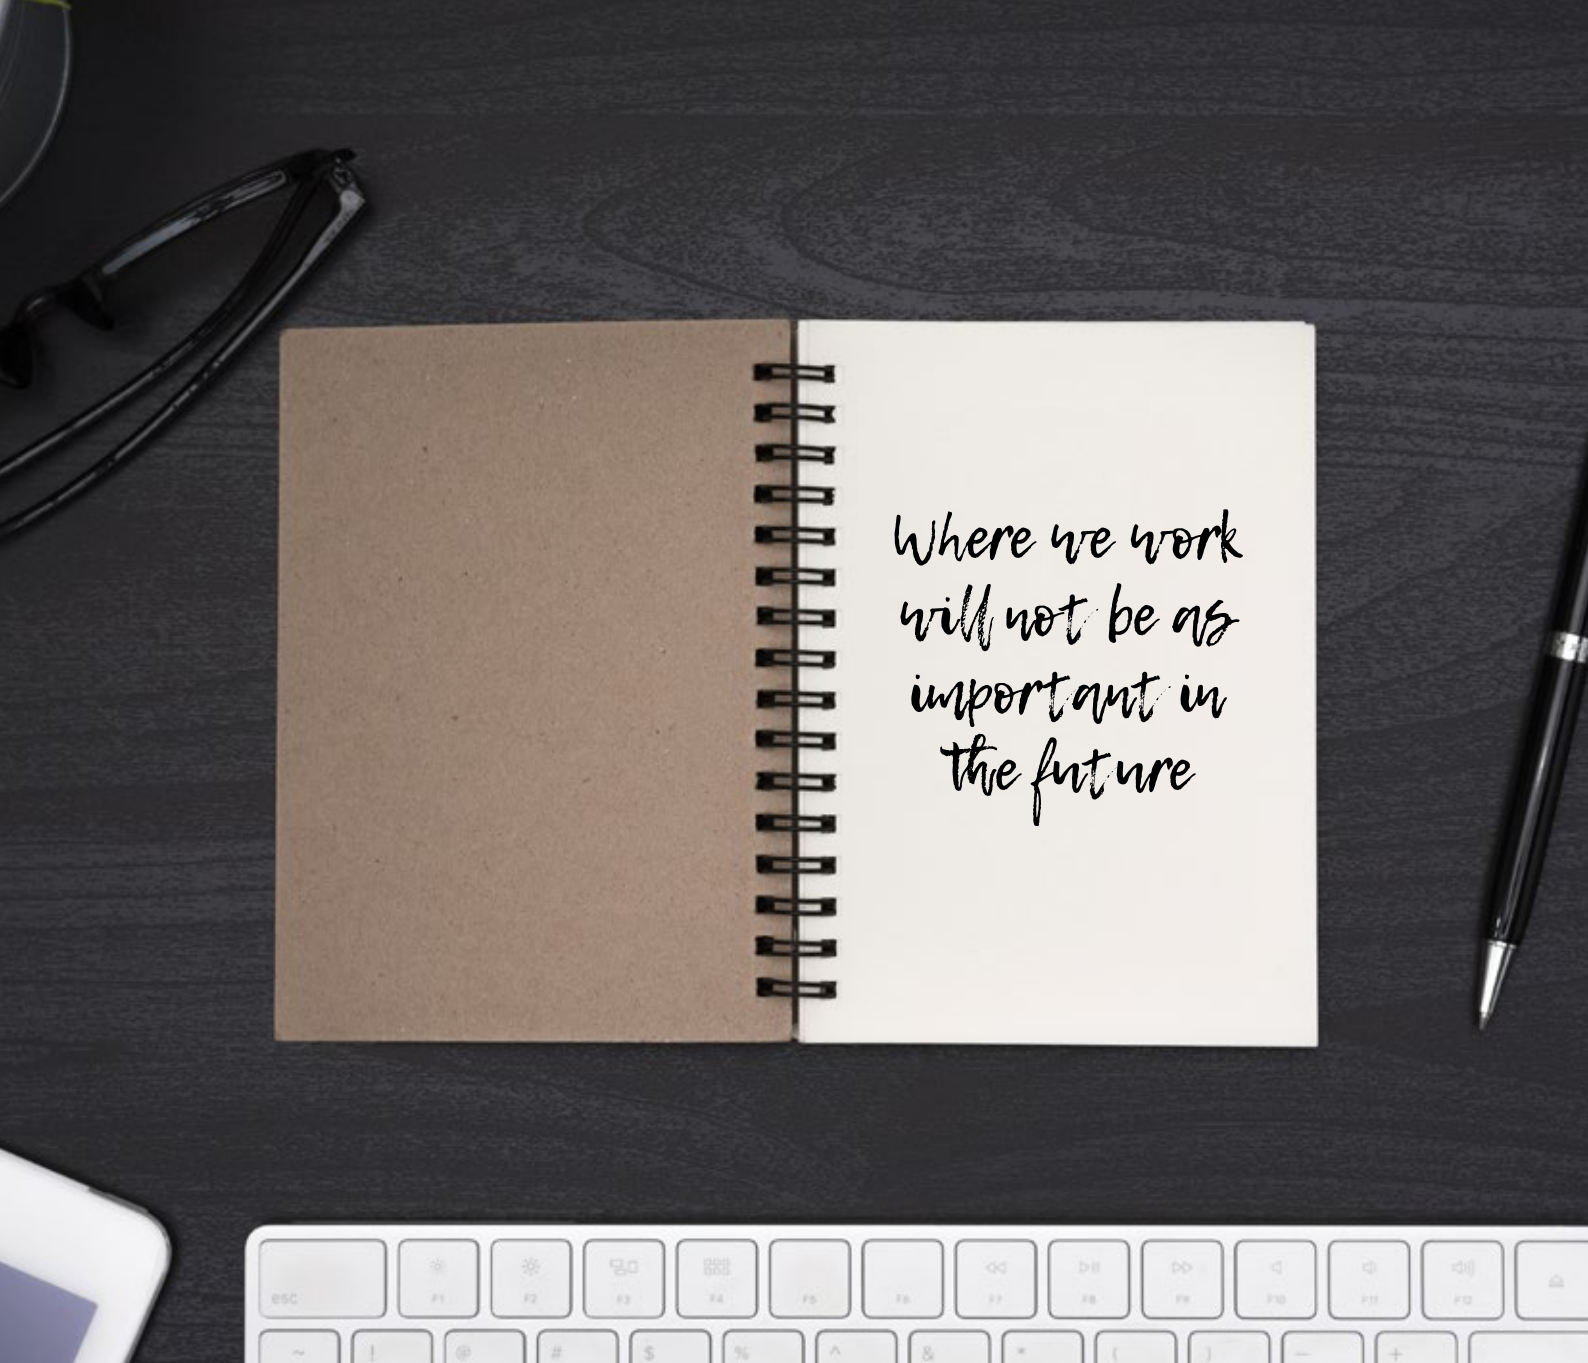 Where we work
will not be as
important in
the future
esc
F1 F2 F3 F4 F5 F6 F7 F8 F9 F10 F11 F12
~ ! @ # $ % ^ & * ( ) – +